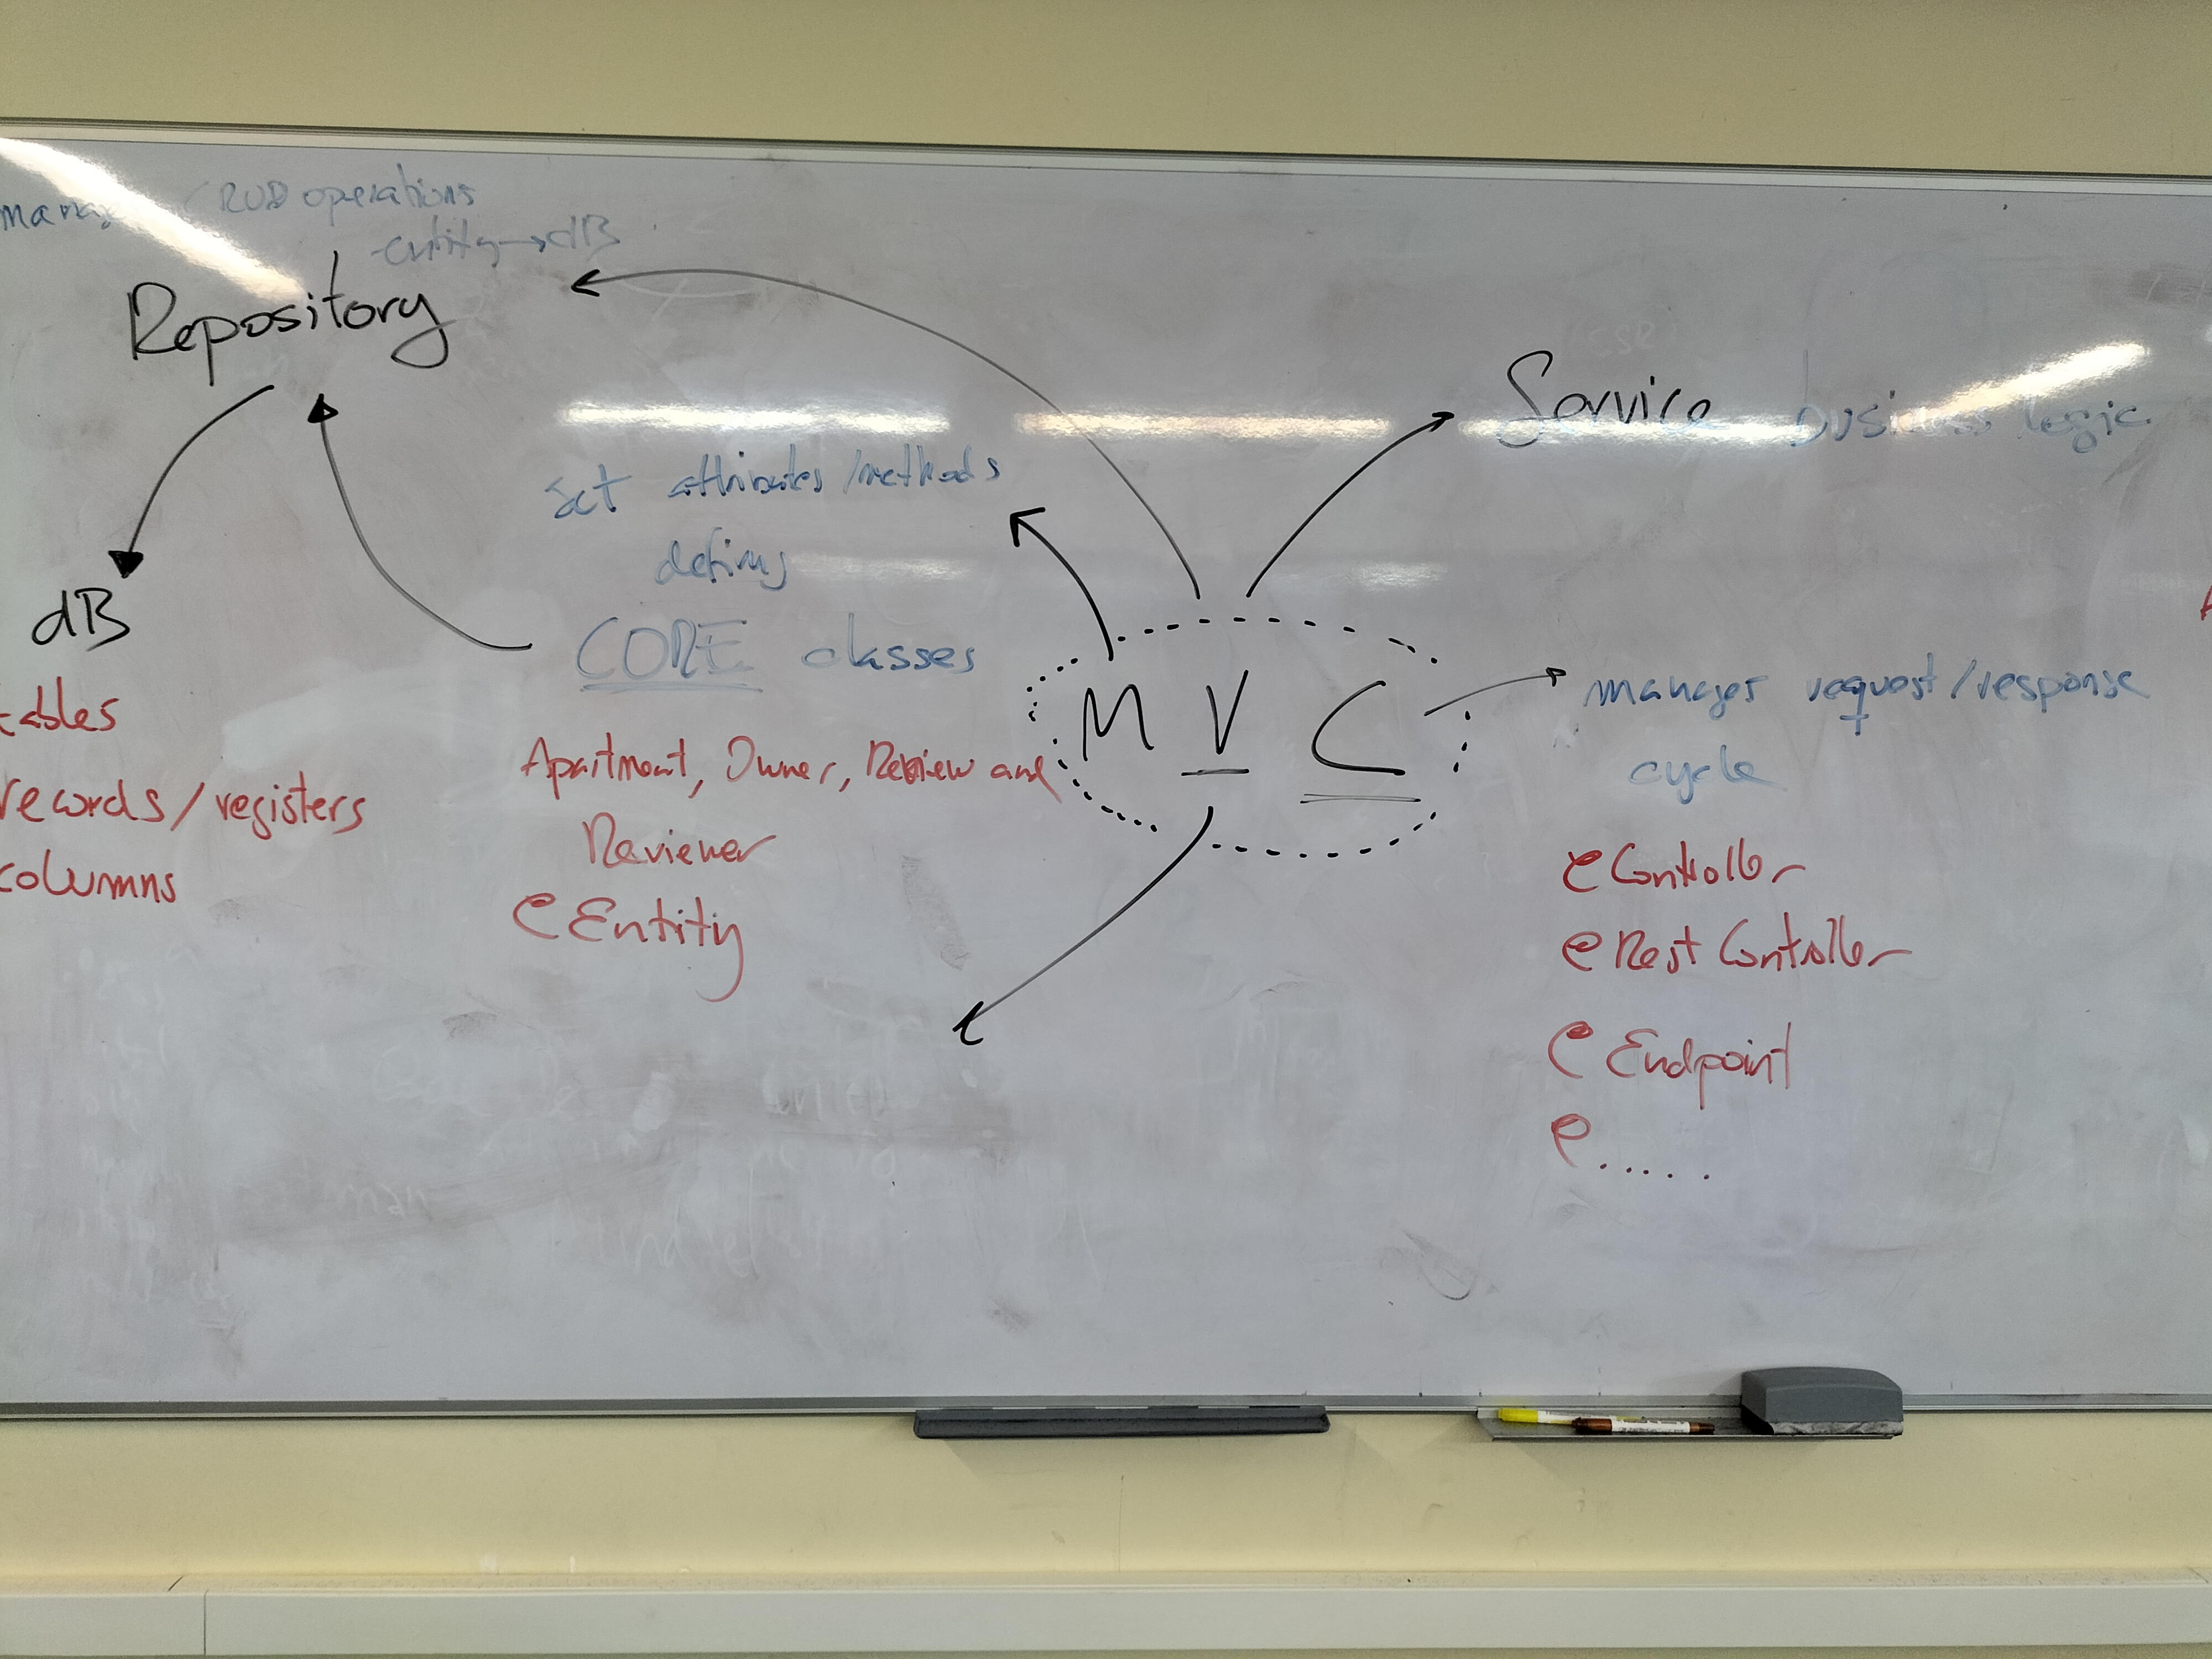 CRUD operations
entity → dB
Repository
dB
tables
records/registers
columns
set attributes/methods
defins
CORE classes
Apartment, Owner, Review and
Reviewer
@Entity
M V C
Service business logic
manages request/response
cycle
@Controller
@RestController
@Endpoint
@.....